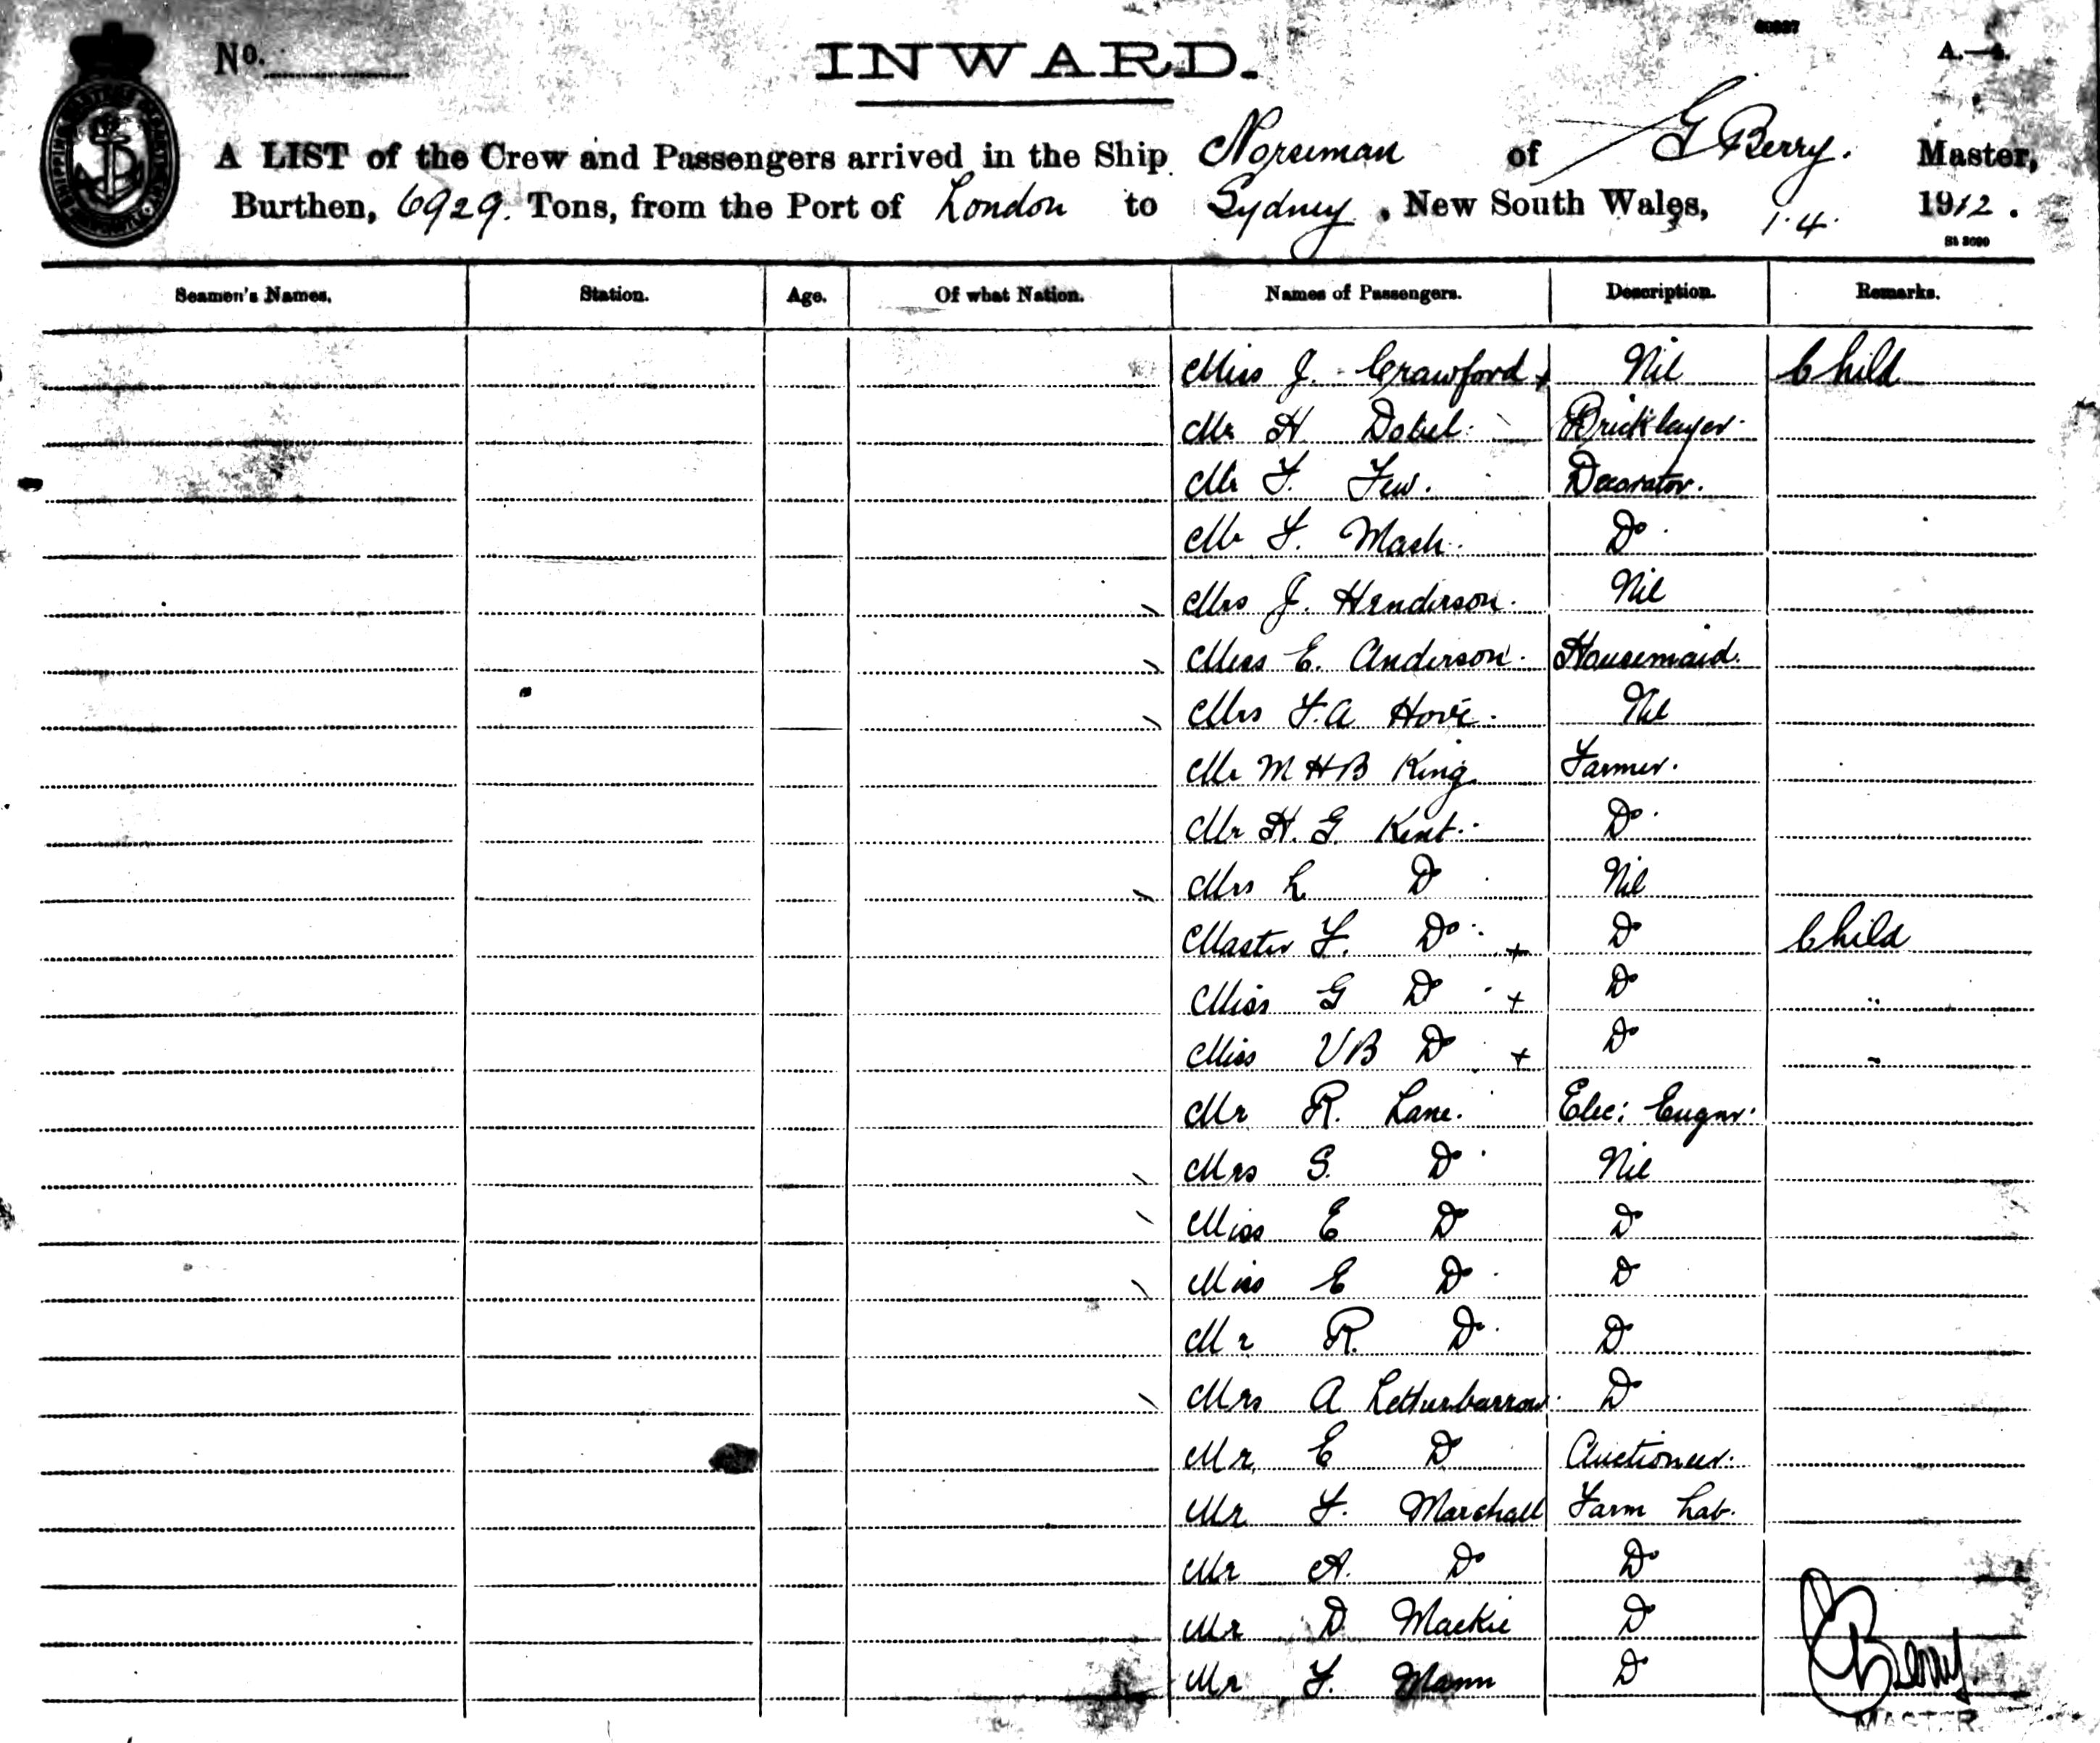 No.
INWARD.
A.—
A LIST of the Crew and Passengers arrived in the Ship Norseman of G Berry. Master,
Burthen, 6929. Tons, from the Port of London to Sydney, New South Wales, 1.4. 1912.
Seamen's Names. Station. Age. Of what Nation. Names of Passengers. Description. Remarks.
Miss J. Crawford + Nil Child
Mr H Dobel. Bricklayer.
Mr F. Few. Decorator.
Mr F. Mash. Do.
Mrs J. Henderson. Nil
Miss E. Anderson. Housemaid.
Mrs F.A Hove. Nil
Mr M H B King Farmer.
Mr H. G. Kent. Do.
Mrs L Do Nil
Master F. Do + Do Child
Miss G Do + Do "
Miss V B Do + Do "
Mr R. Lane. Elec: Engnr:
Mrs S. Do Nil
Miss E Do Do
Miss E Do Do
Mr R. Do Do
Mrs A Letherbarrow Do
Mr E Do Auctioneer.
Mr F. Marshall Farm Lab.
Mr A. Do Do
Mr D Mackie Do
Mr F. Mann Do
G Berry.
MASTER.